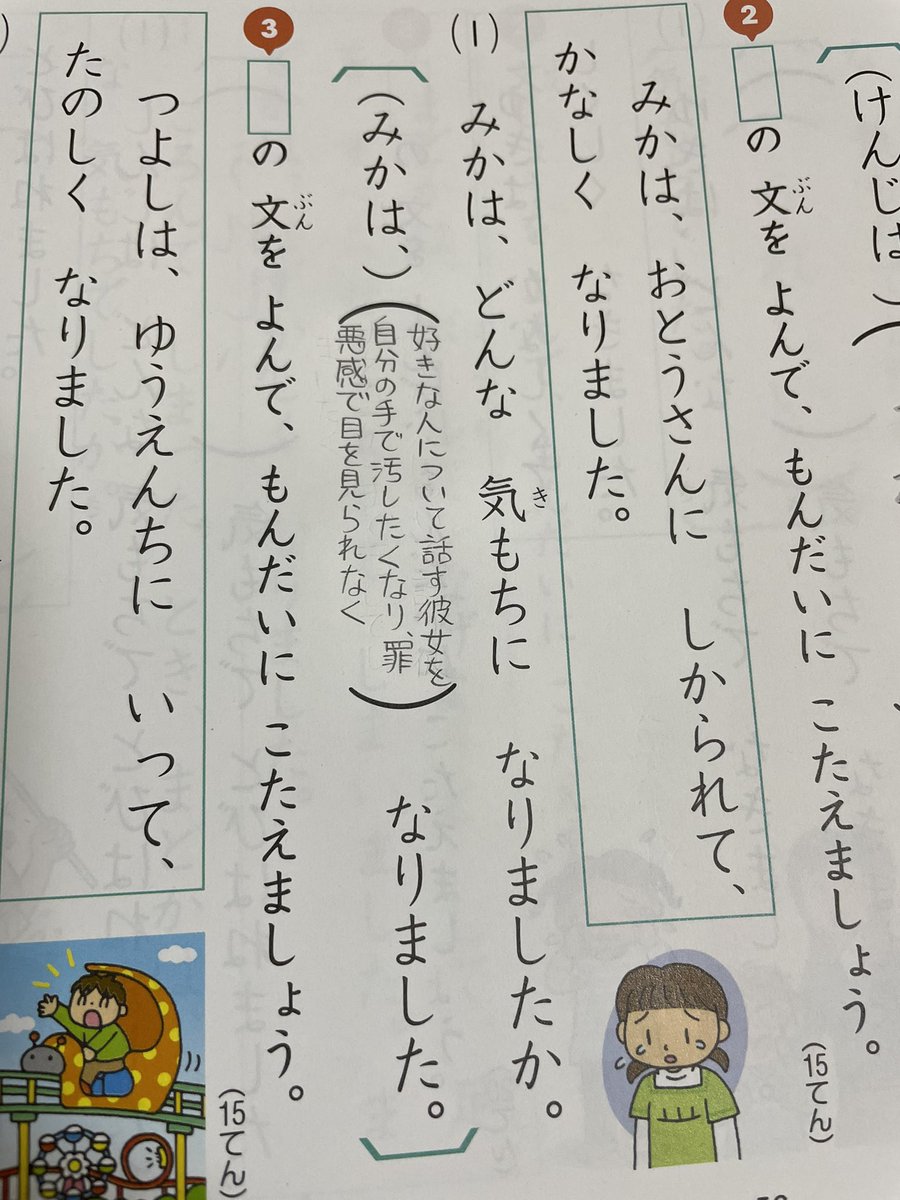 (けんじは
2
の 文を よんで、もんだいに こたえましょう。
ぶん
(15てん)
みかは、おとうさんに しかられて、
かなしく なりました。
(1) みかは、どんな 気もちに なりましたか。
き
(みかは、)(好きな人について話す彼女を
自分の手で汚したくなり、罪
悪感で目を見られなく) なりました。
3
の 文を よんで、もんだいに こたえましょう。
ぶん
(15てん)
つよしは、ゆうえんちに いって、
たのしく なりました。